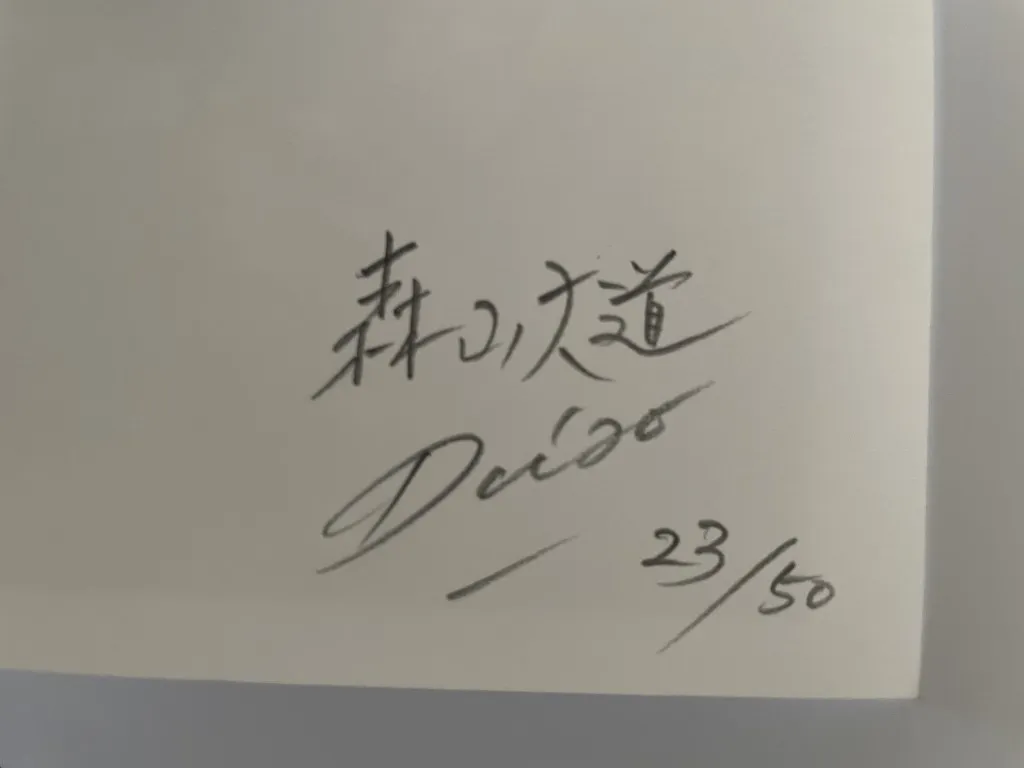 森山大道
Daido
23/50